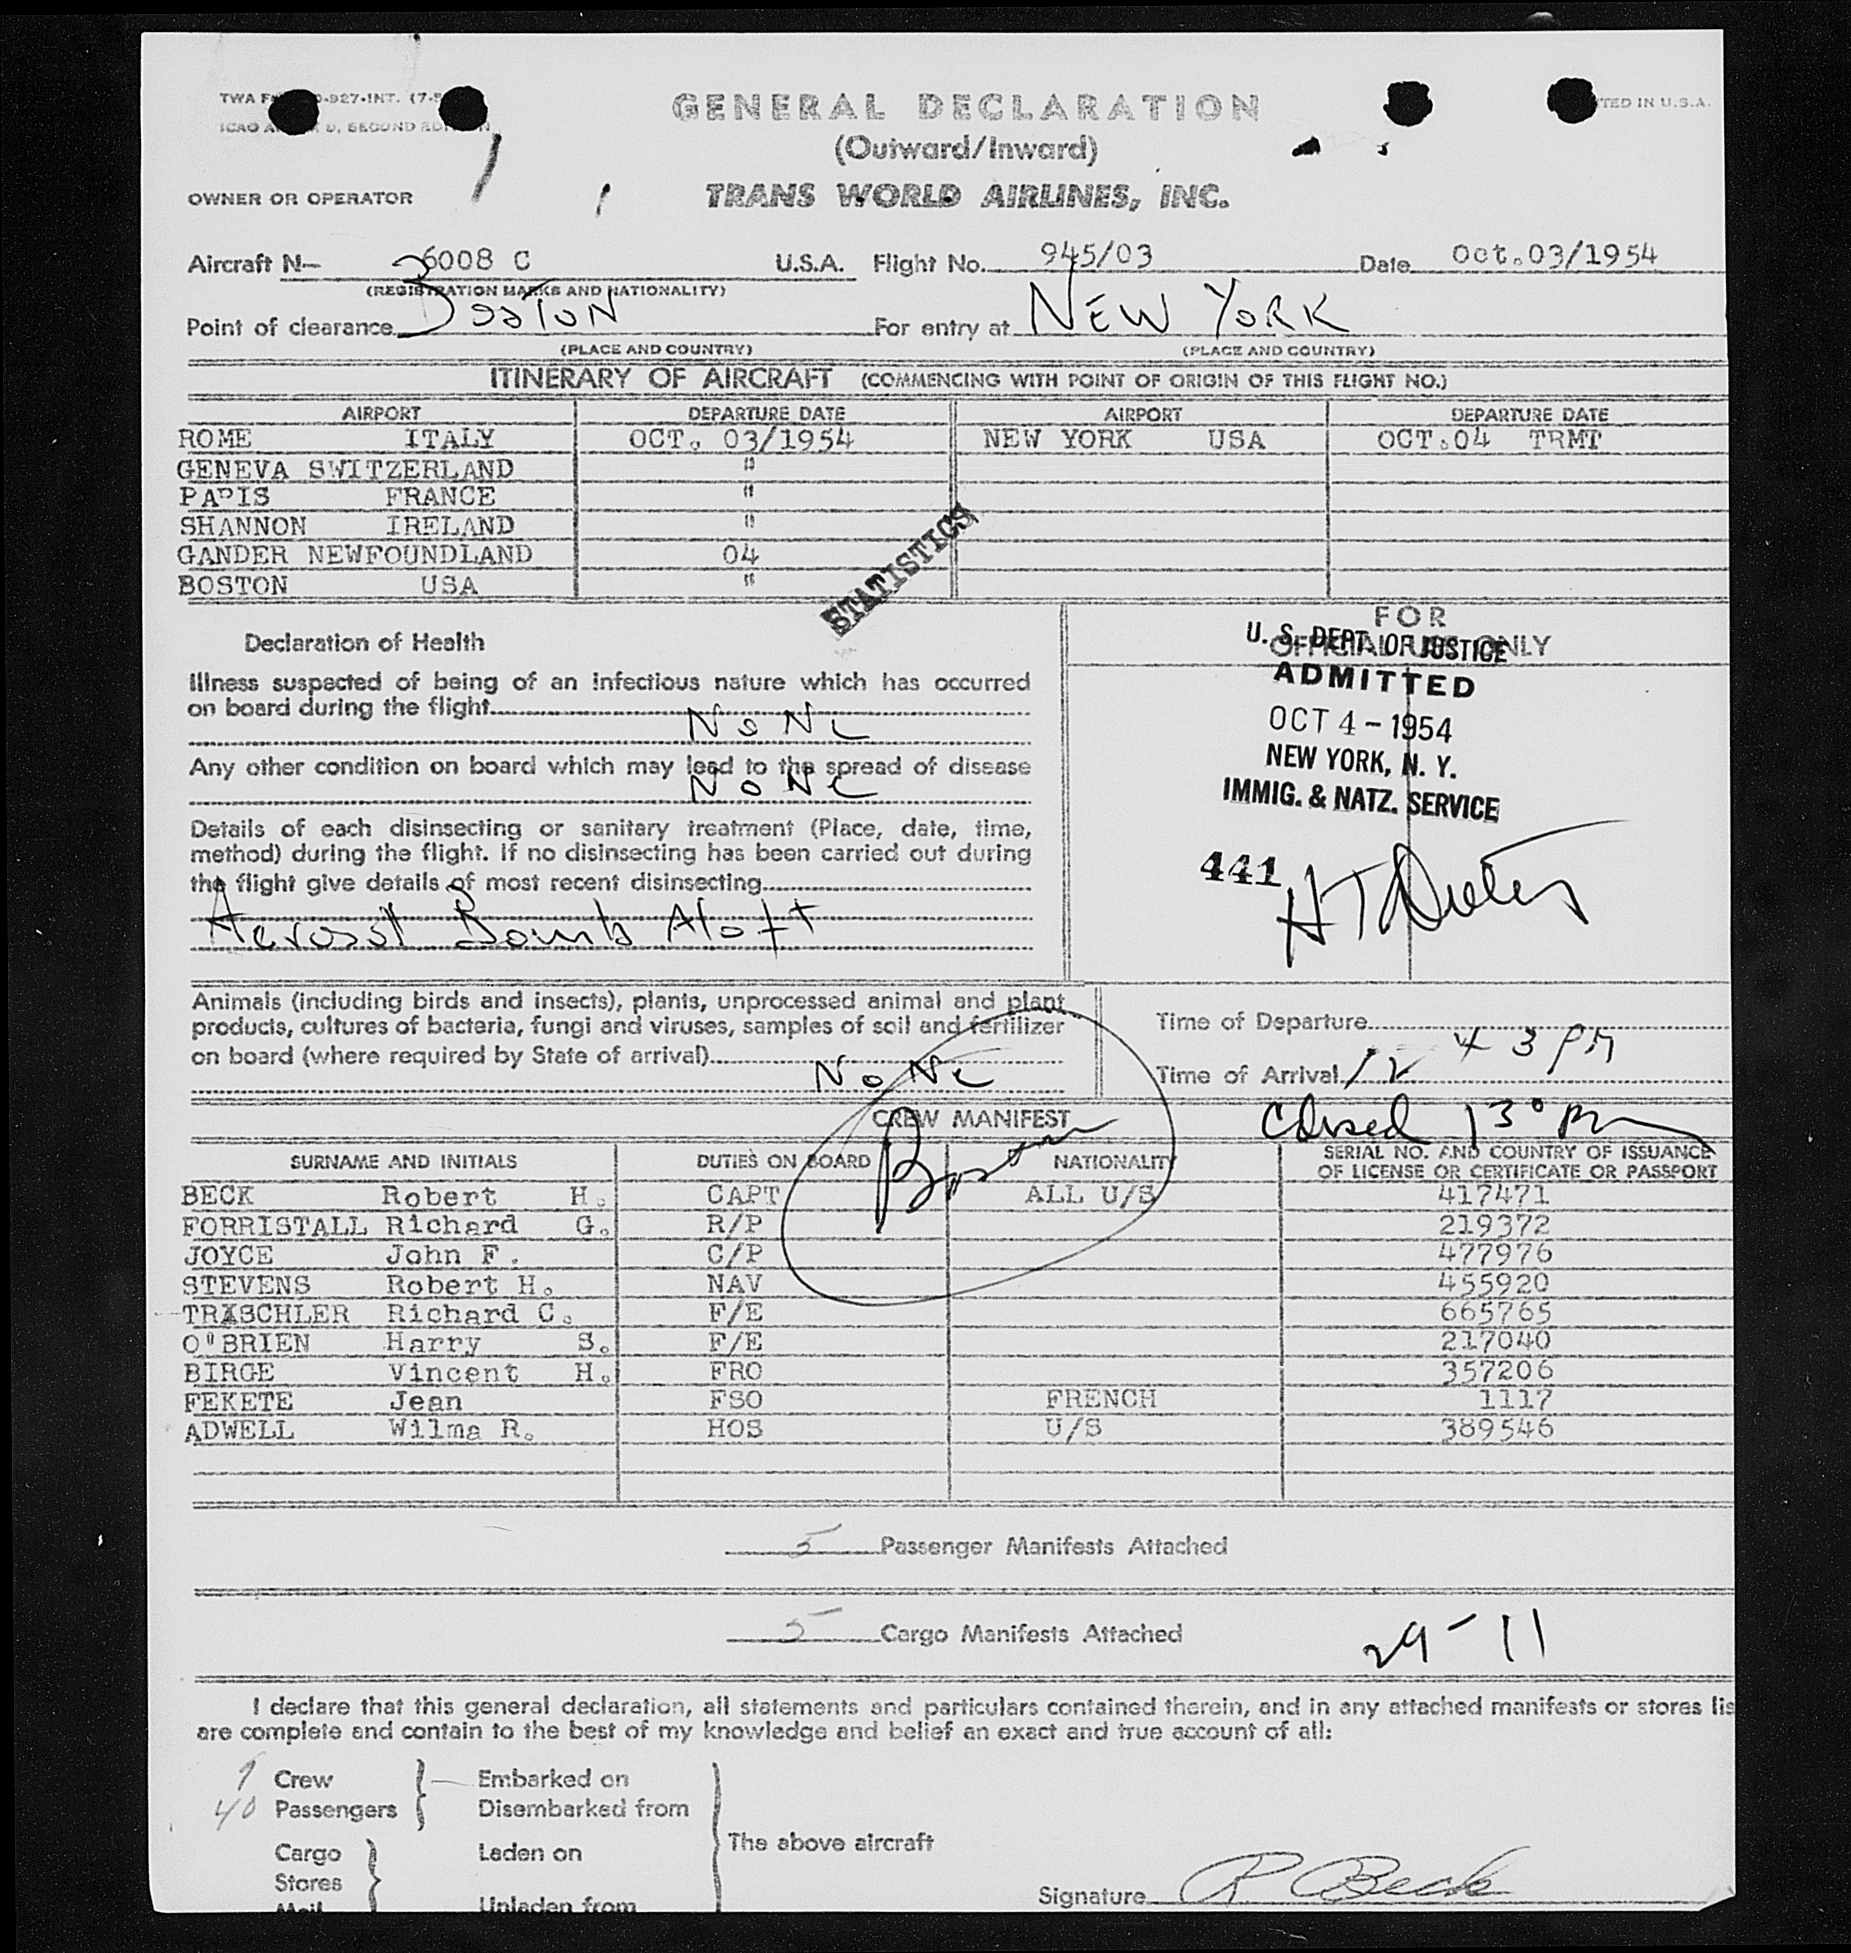 GENERAL DECLARATION
(Outward/Inward)
OWNER OR OPERATOR TRANS WORLD AIRLINES, INC.
Aircraft N— 6008 C U.S.A. Flight No. 945/03 Date Oct.03/1954
(REGISTRATION MARKS AND NATIONALITY)
Point of clearance Boston For entry at NEW YORK
(PLACE AND COUNTRY) (PLACE AND COUNTRY)
ITINERARY OF AIRCRAFT (COMMENCING WITH POINT OF ORIGIN OF THIS FLIGHT NO.)
AIRPORT DEPARTURE DATE AIRPORT DEPARTURE DATE
ROME ITALY OCT. 03/1954 NEW YORK USA OCT.04 TRMT
GENEVA SWITZERLAND "
PARIS FRANCE "
SHANNON IRELAND "
GANDER NEWFOUNDLAND 04
BOSTON USA "
STATISTICS
FOR
OFFICIAL USE ONLY
U. S. DEPT. OF JUSTICE
ADMITTED
OCT 4 - 1954
NEW YORK, N. Y.
IMMIG. & NATZ. SERVICE
441
Declaration of Health
Illness suspected of being of an infectious nature which has occurred
on board during the flight
NoNe
Any other condition on board which may lead to the spread of disease
NoNe
Details of each disinsecting or sanitary treatment (Place, date, time,
method) during the flight. If no disinsecting has been carried out during
the flight give details of most recent disinsecting
Aerosol Bomb Aloft
Animals (including birds and insects), plants, unprocessed animal and plant
products, cultures of bacteria, fungi and viruses, samples of soil and fertilizer
on board (where required by State of arrival)
NoNe
Time of Departure
Time of Arrival 12 43 PM
Closed 1 30 PM
CREW MANIFEST
Boston
SURNAME AND INITIALS DUTIES ON BOARD NATIONALITY SERIAL NO. AND COUNTRY OF ISSUANCE
OF LICENSE OR CERTIFICATE OR PASSPORT
BECK Robert H. CAPT ALL U/S 417471
FORRISTALL Richard G. R/P 219372
JOYCE John F. C/P 477976
STEVENS Robert H. NAV 455920
TRASCHLER Richard C. F/E 665765
O'BRIEN Harry S. F/E 217040
BIRGE Vincent H. FRO 357206
FEKETE Jean FSO FRENCH 1117
ADWELL Wilma R. HOS U/S 389546
5 Passenger Manifests Attached
5 Cargo Manifests Attached
29-11
I declare that this general declaration, all statements and particulars contained therein, and in any attached manifests or stores lis
are complete and contain to the best of my knowledge and belief an exact and true account of all:
9 Crew Embarked on
40 Passengers Disembarked from
The above aircraft
Cargo Laden on
Stores
Mail Unladen from
Signature R Beck